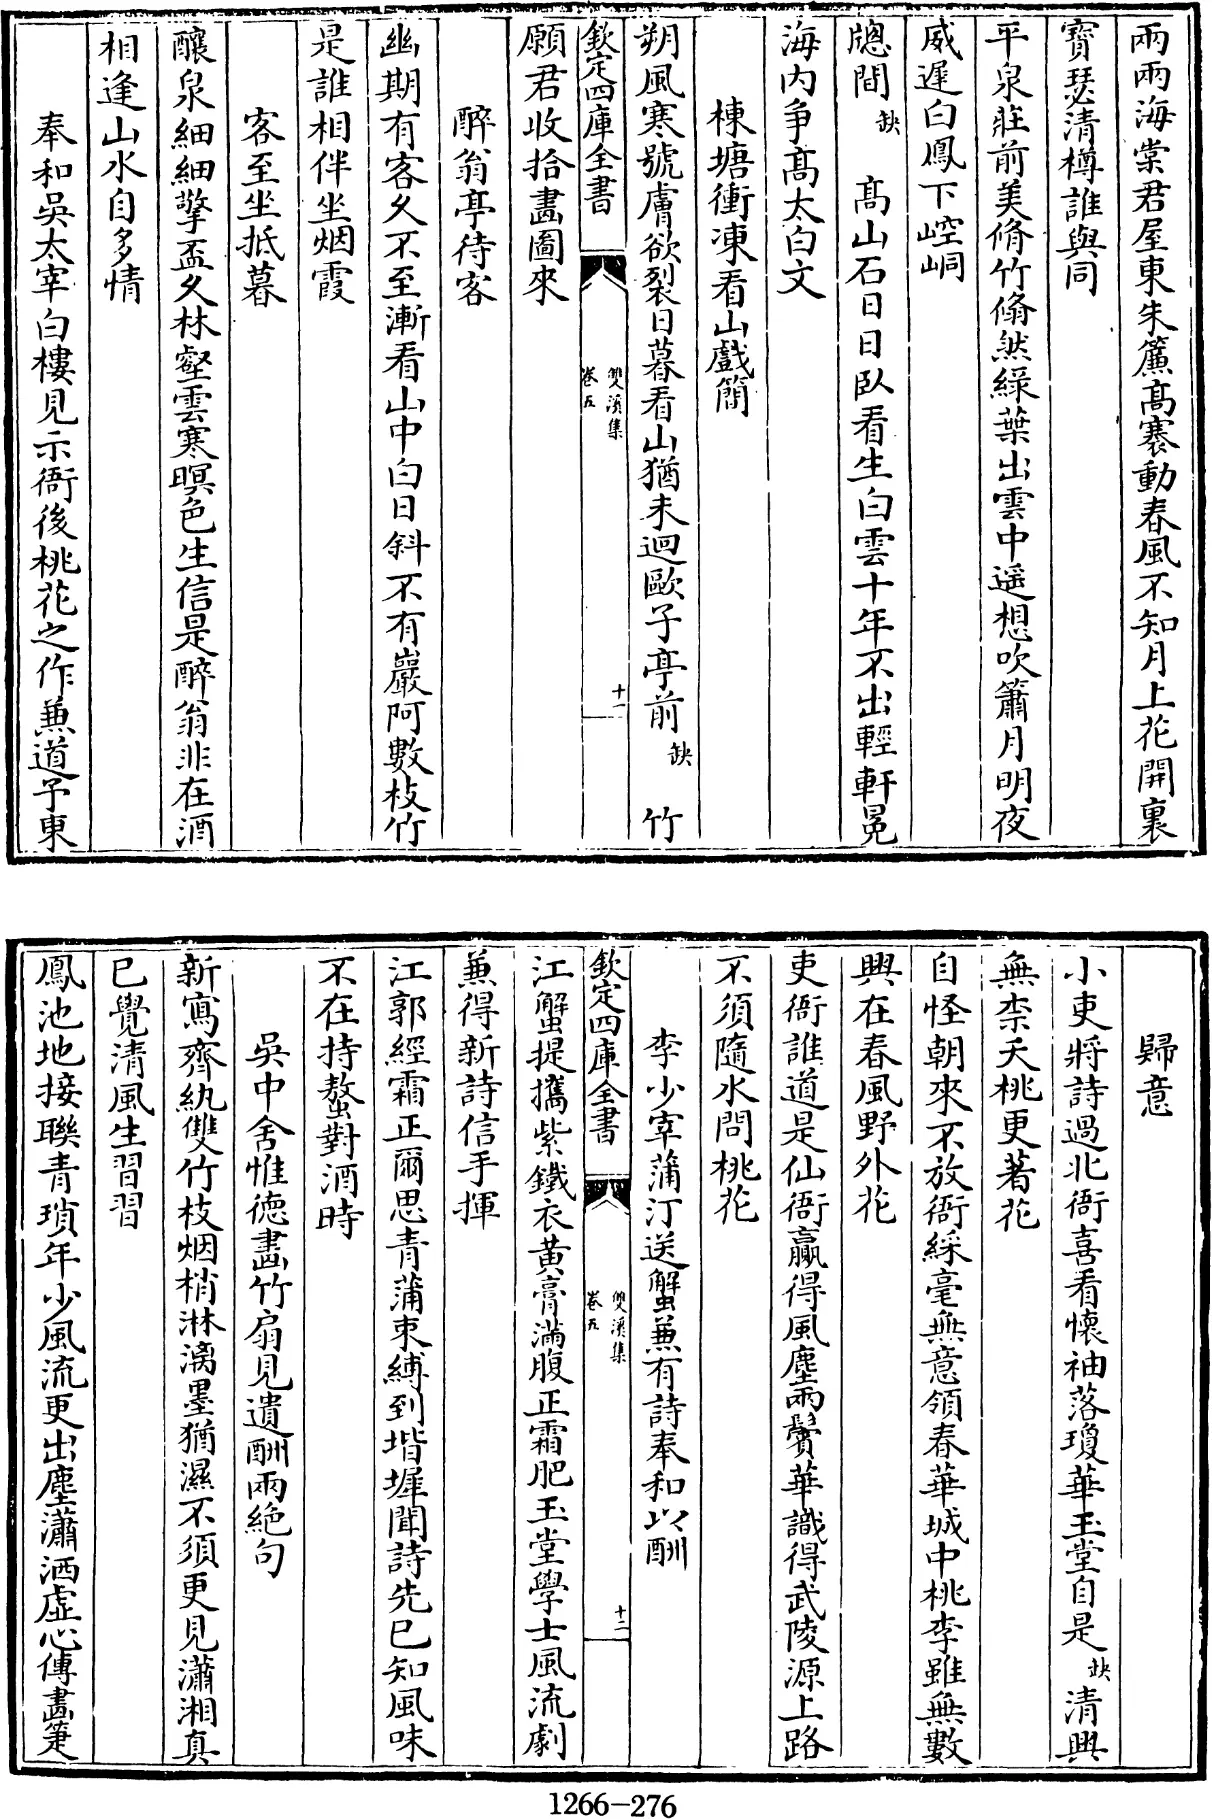 兩兩海棠君屋東朱簾髙褰動春風不知月上花開裏
寳瑟清樽誰與同
平泉莊前美脩竹翛然緑葉出雲中遥想吹簫月明夜
威遲白鳳下崆峒
牕間缺髙山石日日臥看生白雲十年不出輕軒冕
海内争髙太白文
棟塘衝凍看山戲簡
朔風寒號膚欲裂日暮看山猶未迴歐子亭前缺竹
欽定四庫全書
雙溪集
卷五
十一
願君收拾畵圖來
醉翁亭待客
幽期有客久不至漸看山中白日斜不有巖阿數枝竹
是誰相伴坐烟霞
客至坐抵暮
釀泉細細擎盃久林壑雲寒暝色生信是醉翁非在酒
相逢山水自多情
奉和吳太宰白樓見示衙後桃花之作兼道予東
歸意
小吏將詩過北衙喜看懷袖落瓊華玉堂自是缺清興
無柰夭桃更著花
自怪朝來不放衙綵毫無意領春華城中桃李雖無數
興在春風野外花
吏衙誰道是仙衙贏得風塵兩鬢華識得武陵源上路
不須隨水問桃花
李少宰蒲汀送蟹兼有詩奉和以酬
欽定四庫全書
雙溪集
卷五
十二
江蟹提攜紫鐵衣黄膏滿腹正霜肥玉堂學士風流劇
兼得新詩信手揮
江郭經霜正爾思青蒲束縛到堦墀聞詩先已知風味
不在持螯對酒時
吳中舍惟德畵竹扇見遺酬兩絶句
新寫齊紈雙竹枝烟梢淋漓墨猶濕不須更見瀟湘真
已覺清風生習習
鳳池地接聯青瑣年少風流更出塵瀟洒虚心傳畵筆
1266-276